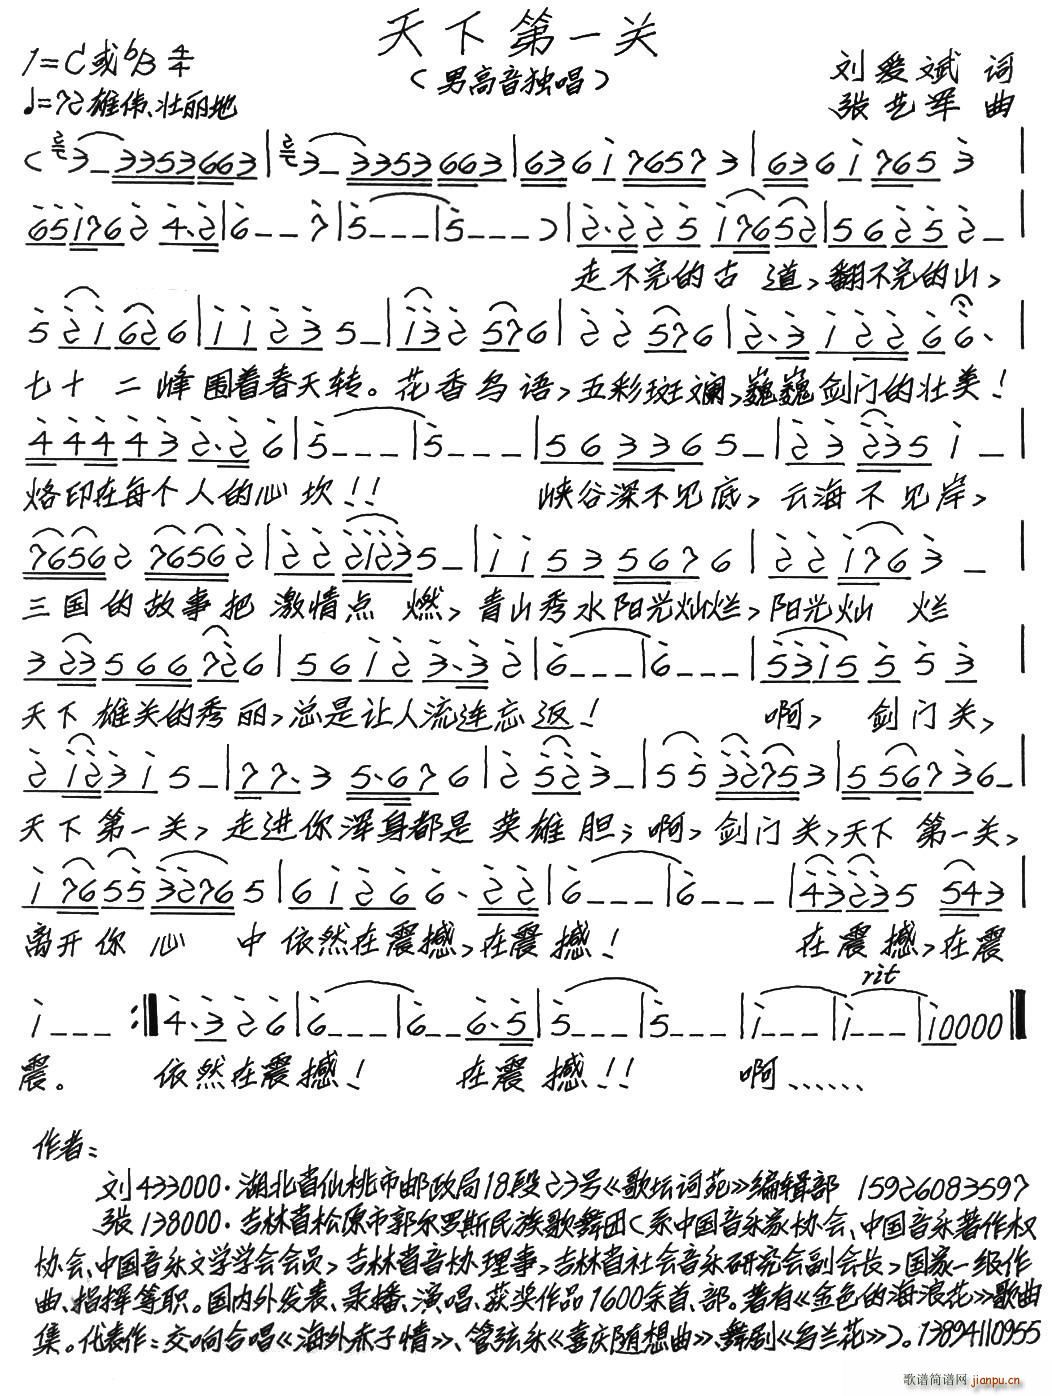 天下第一关
1=C或♭B 4/4
（男高音独唱）
刘爱斌 词
♩=72 雄伟、壮丽地
张艺军 曲
走不完的古 道,翻不完的山,
七十 二峰围着春天转。花香鸟语,五彩斑斓,巍巍剑门的壮美!
烙印在每个人的心坎!! 峡谷深不见底,云海不见岸,
三国的故事把 激情点 燃,青山秀水阳光灿烂,阳光灿 烂
天下 雄关的秀丽,总是让人流连忘返! 啊, 剑门关,
天下第一关,走进你浑身都是 英雄胆;啊,剑门关,天下 第一关,
离开你 心 中依然在震撼,在震撼! 在震撼,在震
rit
震。 依然在震撼! 在震撼!! 啊……
作者:
刘433000·湖北省仙桃市邮政局18段23号《歌坛词苑》编辑部 15926083597
张138000·吉林省松原市郭尔罗斯民族歌舞团(系中国音乐家协会、中国音乐著作权
协会、中国音乐文学学会会员,吉林省音协理事,吉林省社会音乐研究会副会长,国家一级作
曲、指挥等职。国内外发表、录播、演唱、获奖作品1600余首、部。著有《金色的海浪花》歌曲
集。代表作:交响合唱《海外赤子情》、管弦乐《喜庆随想曲》、舞剧《乌兰花》)。13894110955
歌谱简谱网
jianpu.cn